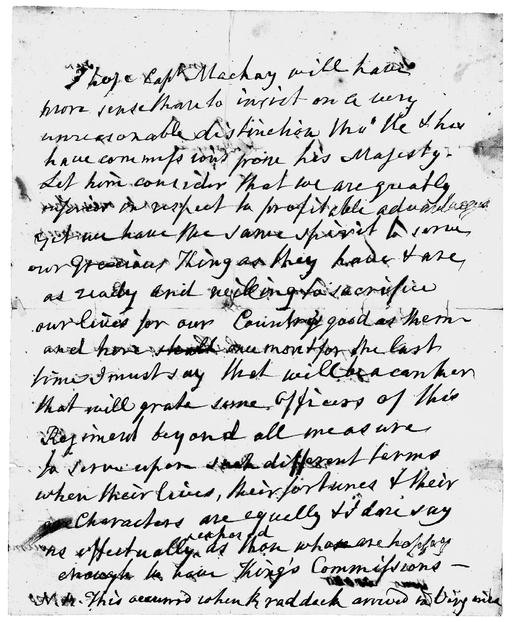 I hope Capt Mackay will have
more sense than to insist on a very
unreasonable distinction tho' he & his
have commissions from his Majesty.
Let him consider that we are greatly
inferior in respect to profitable advantages
yet we have the same spirit to serve
our Gracious King as they have & are
as ready and willing to sacrifice
our lives for our Country's good as them
and here once more for the last
time I must say that will be a canker
that will grate some Officers of this
Regiment beyond all measure
to serve upon such different terms
when their lives, their fortunes & their
Characters are equally & I dare say
as effectually exposed as those who are happy
enough to have King's Commissions —
This occurred when Braddock arrived in Virginia